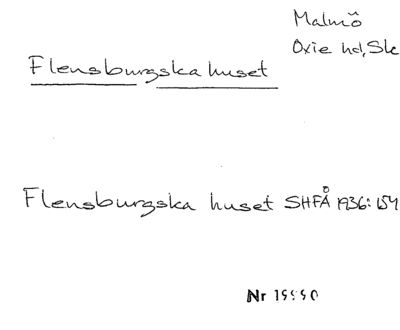 Malmö
Oxie hd, Sk
Flensburgska huset
Flensburgska huset SHFÅ 1936: 154
Nr